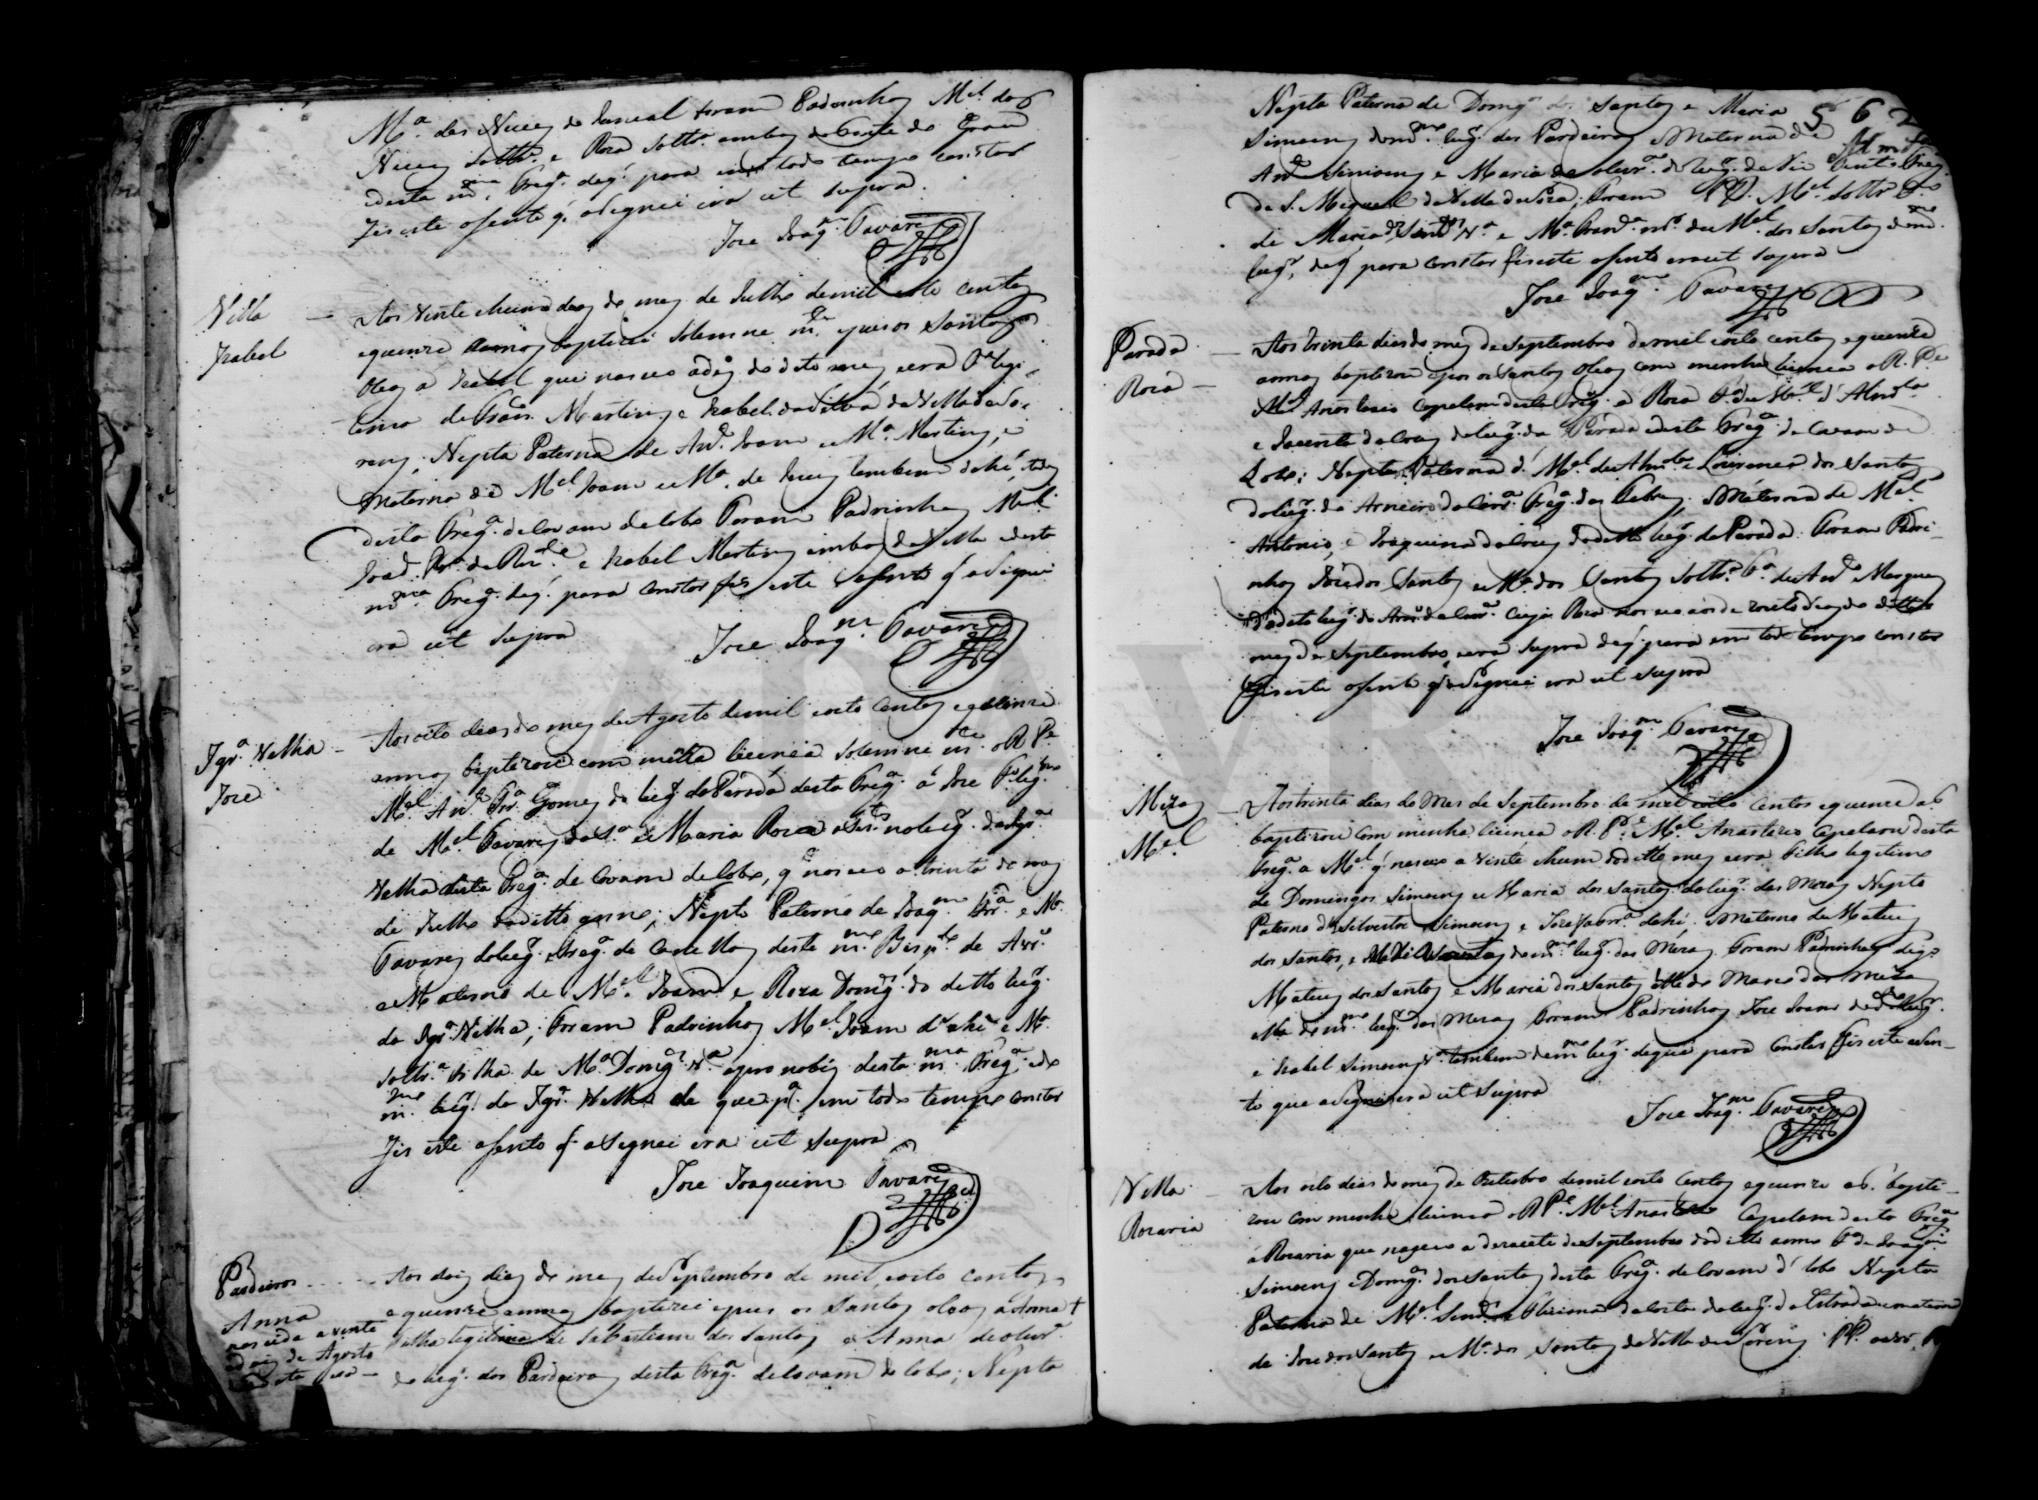 Mª. das Neves do Juncal foram Padrinhos Mel. das
Neves soltrº. e Roza soltrª. ambos da Fonte do Grou
desta mma. Fregª. de q'. para em todo tempo constar
fis este asento q'. asignei era ut supra.
Joze Joaqm. Tavares
Villa
Izabel
Aos vinte e hum dias do mez de Julho de mil e oito centos
e quinze annos baptizei solemne mte. e pus os santos
oleos a Izabel que nasceo a dez do dito mez e era Fª legi
tima de Franco. Martins e Izabel da Silva da Villa de So
rens, Nepta Paterna de Anto. Joam e Mª. Martins, e
materna de Mel. Joam e Mª. de Jesus tambem dahi, todos
desta Fregª. de Covam do Lobo Foram Padrinhos Mel.
e Izabel Martins ambos da Villa desta
mma. Fregª. de q'. para constar fis este asento q' asignei
era ut supra
Joze Joaqm. Tavares
Igrª. Velha
Joze
Aos oito dias do mez de Agosto de mil e oito centos e quinze
annos baptizou com minha licencia solemne mte. o R Pe.
Mel. Anto. Frª. Gomes do lugr. da Parada desta Fregª. a Joze Fo. legmo.
de Mel. Tavares da Sª. e Maria Roza no lugr. da Igrª.
Velha desta Fregª. de Covam do Lobo, q nasceo a trinta do mez
de Julho do ditto anno; Nepto Paterno de Joaqm. Frª. e Mª.
Tavares do lugr. e Fregª. de Covellas deste mmo. Bispdo. de Avrº.
e Materno de Mel. Joam e Roza Domgs. do ditto lugr.
da Igrª. Velha; Foram Padrinhos Mel. Joam dahi e Mª.
soltrª. filha de Mª Domgs. Vª desta mma. Fregª. e do
mmo. lugr. da Igrª. Velha de que pª. em todo tempo constar
fis este asento q asignei era ut supra
Joze Joaquim Tavares
Pardieiros
Anna
nascida a vinte
e dois de Agosto
Aos dois dias do mez de Septembro de mil e oito centos
e quinze annos baptizei e pus os santos oleos a Anna
filha legitima de Sebastiam dos Santos e Anna de Olivrª.
do lugr. dos Pardieiros desta Fregª. de Covam do Lobo; Nepta
562
Nepta Paterna de Domgs. dos Santos e Maria
Simoens do mmo. lugr. dos Pardeiros e Materna de
Anto. Simoens e Maria de Olivrª. do lugr. de
de S. Miguel da Villa de Soza; foram PP. Mel. soltrº. Fo.
de Maria dos Santos Vª e Mª. mer. de Mel. dos Santos do mmo.
lugr. de q para constar fis este asento era ut supra
Joze Joaqm. Tavares
Parada
Roza
Aos trinta dias do mez de Septembro de mil e oito centos e quinze
annos baptizou e pos os santos oleos com minha licencia o R. Pe.
Mel. Anastacio Capelam desta Fregª. a Roza Fª de Mel. d'Almda.
e Jacinta da Cruz do lugr. da Parada desta Fregª. de Covam do
Lobo; Nepta Paterna d' Mel. de Almda. e Lourença dos Santos
do lugr. do Arneiro Fregª. das Febres, e Materna de Mel.
Antonio, e Joaquina da Cruz do ditto lugr. da Parada. Foram Padri-
nhos Joze dos Santos e Mª. dos Santos soltrª. Fª. de Anto. Marques
do dito lugr. do cuja Roza nasceo aos dezoito dias do ditto
mez de Septembro e era supra de q' para em todo tempo constar
fis este asento q asignei era ut supra
Joze Joaqm. Tavares
Mezas
Mel.
Aos trinta dias do Mes de Septembro de mil e oito centos e quinze a.
baptizou com minha licencia o R. Pe. Mel. Anastazio Capelam desta
Fregª. a Mel. q' nasceo a vinte e hum do ditto mez e era Filho legitimo
de Domingos Simoens e Maria dos Santos do lugr. das Mezas Nepto
Paterno de Silvestre Simoens e Jozefa dahi. e Materno de Mateus
dos Santos, e do mmo. lugr. das Mezas. Foram Padrinhos digo
Mateus dos Santos e Maria dos Santos
do mmo. lugr. das Mezas Foram Padrinhos Joze Joam do mmo. lugr.
e Izabel Simoens tambem do mmo. lugr. de que para constar fis este asen-
to que asignei era ut supra
Joze Joaqm. Tavares
Villa
Rozaria
Aos oito dias do mez de Outubro de mil e oito centos e quinze a. bapti-
zou com minha licencia o R Pe. Mel. Anastazio Capelam desta Fregª
a Rozaria que nasceo a dezasete de Septembro do ditto anno Fª de Joaqm.
Simoens e Domgª. dos Santos desta Fregª. de Covam d' Lobo Nepta
Paterna de Mel. do lugr. da Estrada e materna
de Joze dos Santos e Mª. dos Santos da Villa de Sorens. PP.